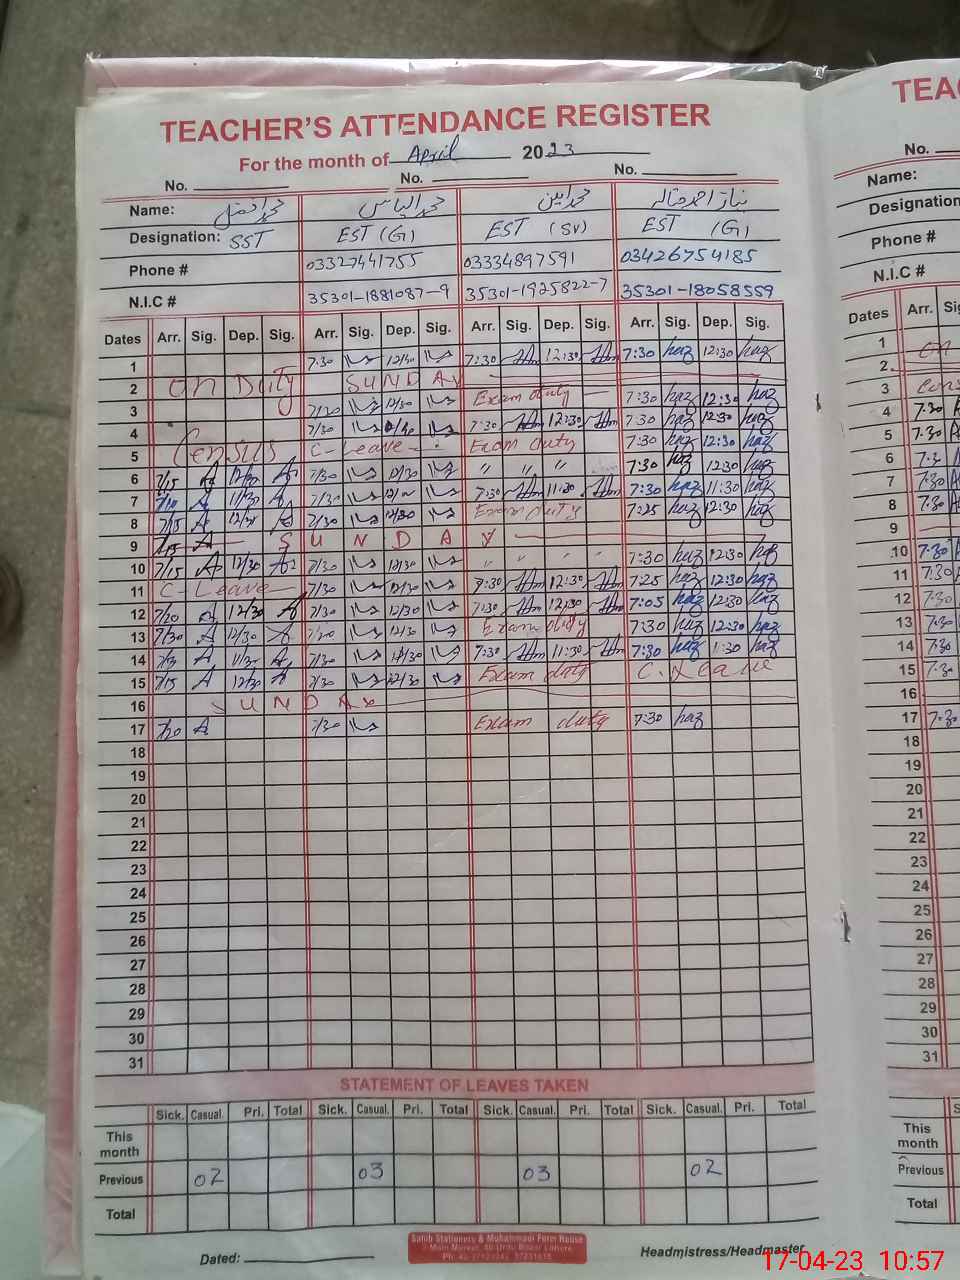 TEACHER'S ATTENDANCE REGISTER
For the month of April 2023
No. No. No.
Name: محمد افضل محمد الیاس محمد امین نیاز احمد
Designation: SST EST (G) EST (SV) EST (G)
Phone # 03327441755 03334897591 03426754185
N.I.C # 35301-1881087-9 35301-1925822-7 35301-18058559
Dates Arr. Sig. Dep. Sig. Arr. Sig. Dep. Sig. Arr. Sig. Dep. Sig. Arr. Sig. Dep. Sig.
1 7:30 12/30 7:30 12:30 7:30 haz 12:30 haz
2 On Duty SUNDAY
3 7/20 12/30 Exam duty 7:30 haz 12:30 haz
4 7/30 7:30 12:30 7:30 haz 12:30 haz
5 Census C-Leave Exam duty 7:30 haz 12:30 haz
6 7/15 A 12/30 A 7/30 12/30 " " " 7:30 haz 12:30 haz
7 7/10 A 11/30 A 7/30 7:30 11:30 7:30 haz 11:30 haz
8 7/15 A 12/30 A 7/30 12/30 Exam duty 7:25 haz 12:30 haz
9 SUNDAY
10 7/15 A 12/30 A 7/30 12/30 " " " 7:30 haz 12:30 haz
11 C-Leave 7/30 12/30 7:30 12:30 7:25 haz 12:30 haz
12 7/20 A 12/30 A 7/30 12/30 7:30 12:30 7:05 haz 12:30 haz
13 7/30 A 12/30 A 7/20 12/30 Exam duty 7:30 haz 12:30 haz
14 A 11/30 A 7/30 7:30 11:30 7:30 haz 1:30 haz
15 7/15 A 12/30 A 7/30 12/30 Exam duty C. Leave
16 SUNDAY
17 7/20 A 7/30 Exam duty 7:30 haz
18
19
20
21
22
23
24
25
26
27
28
29
30
31
STATEMENT OF LEAVES TAKEN
Sick. Casual. Pri. Total Sick. Casual. Pri. Total Sick. Casual. Pri. Total Sick. Casual. Pri. Total
This month
Previous 02 03 03 02
Total
Sahib Stationers & Muhammadi Form House
Dated: Headmistress/Headmaster
TEAC
No.
Name:
Designation
Phone #
N.I.C #
Dates Arr.
1 on
2
3
4 7:30
5 7:30
6
7 7:30
8 7:30
9
10 7:30
11 7:30
12 7:30
13 7:30
14 7:30
15 7:30
16
17 7:30
18
19
20
21
22
23
24
25
26
27
28
29
30
31
This month
Previous
Total
17-04-23 10:57